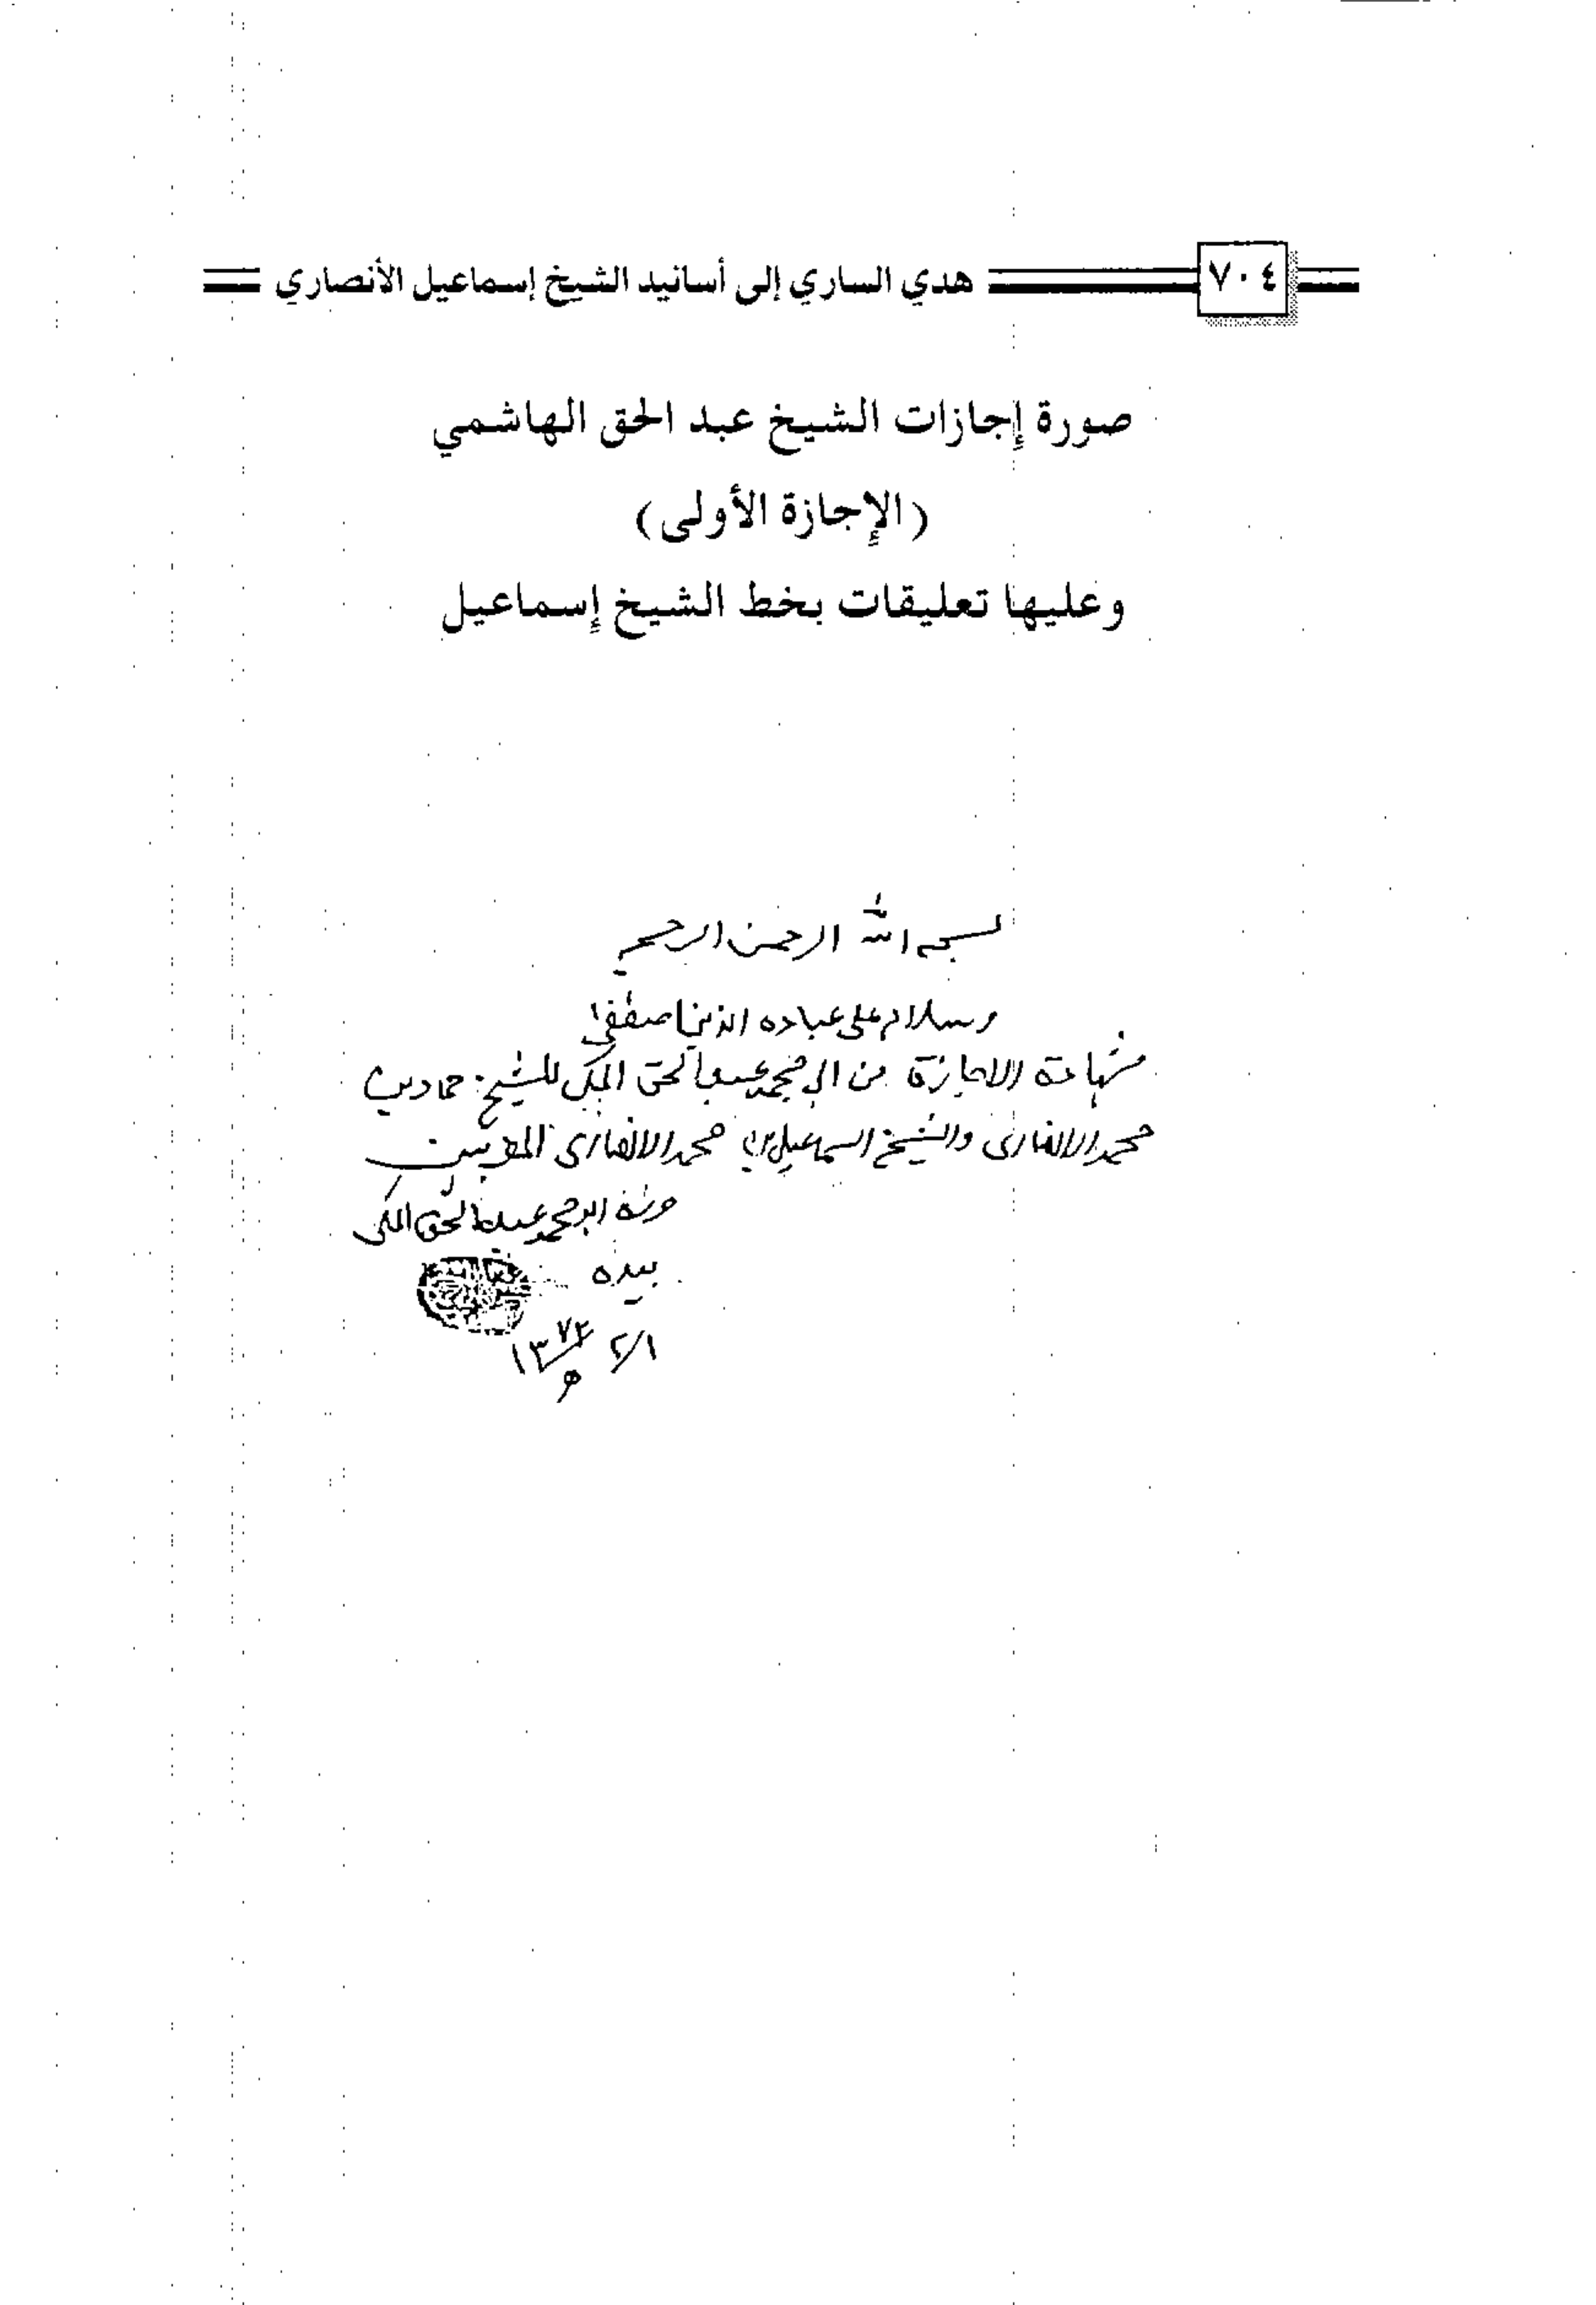 ٧٠٤
هدي الساري إلى أسانيد الشيخ إسماعيل الأنصاري
صورة إجازات الشيخ عبد الحق الهاشمي
(الإجازة الأولى)
وعليها تعليقات بخط الشيخ إسماعيل
بسم الله الرحمن الرحيم
وسلام على عباده الذين اصطفى
شهادة الاجازة من ابي محمد عبد الحق المكي للشيخ حماد بن
محمد الانصاري والشيخ اسماعيل بن محمد الانصاري
ابو محمد عبد الحق المكي
بيده